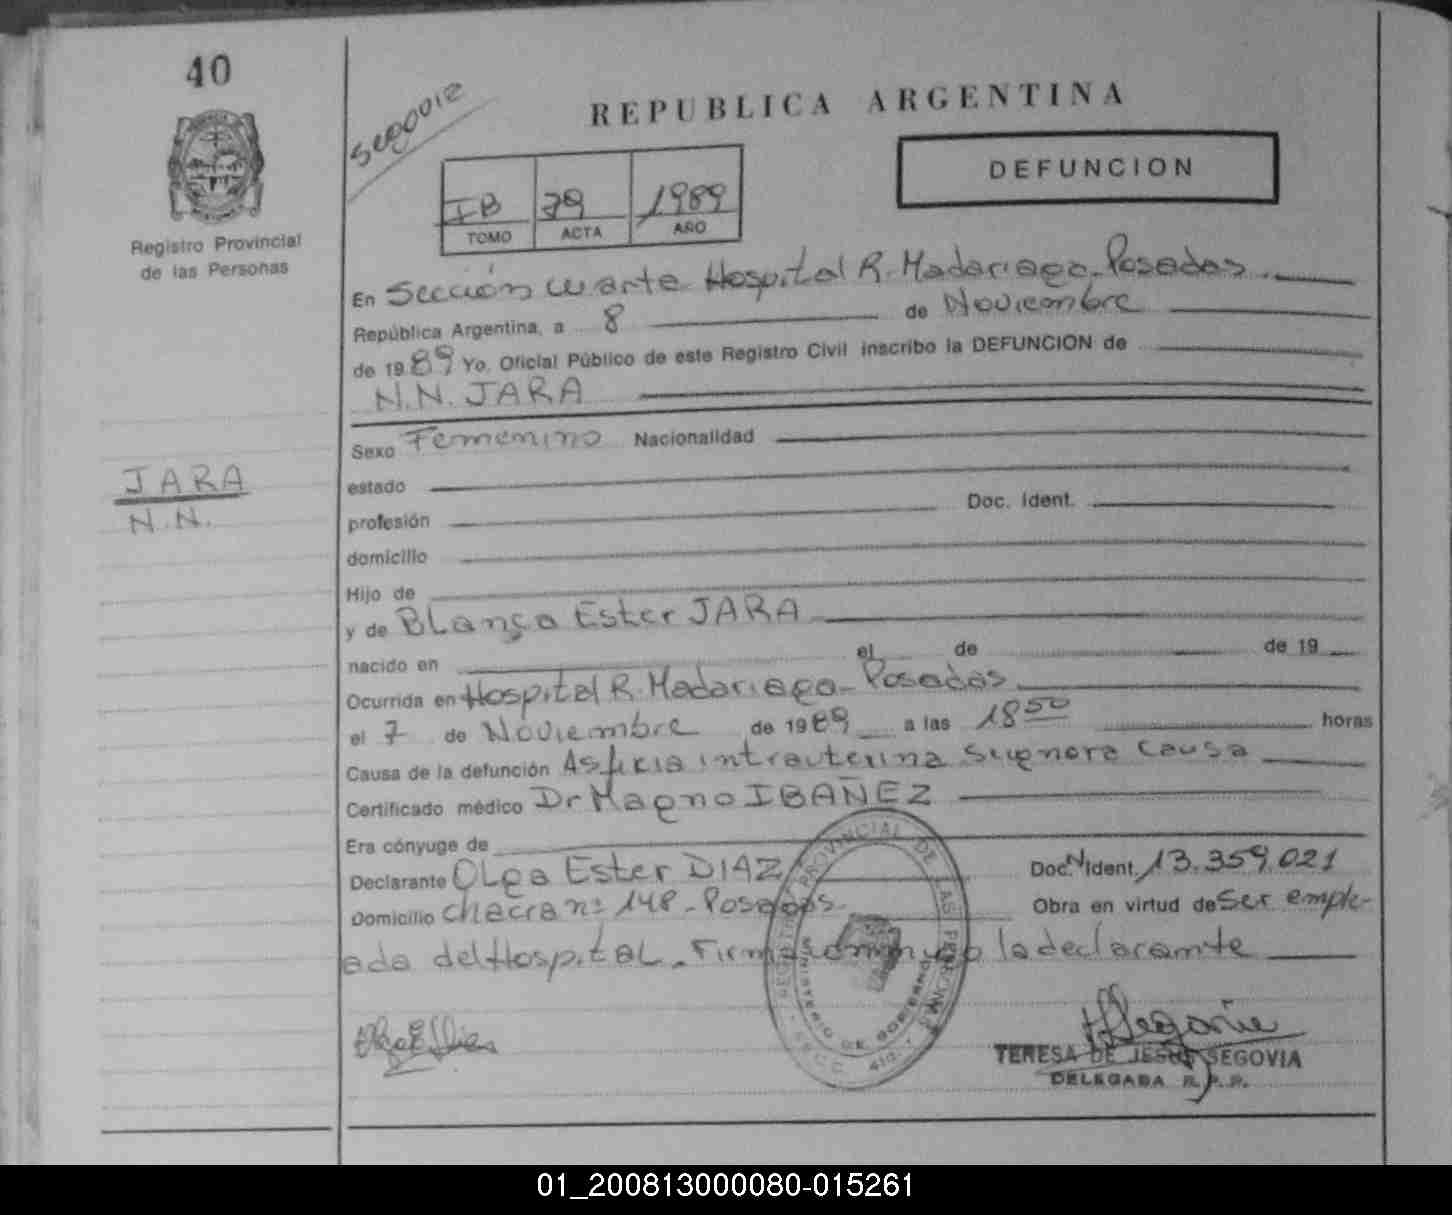 40
Registro Provincial
de las Personas
JARA
N.N.
REPUBLICA ARGENTINA
DEFUNCION
79 1989
TOMO ACTA AÑO
En Sección cuarta Hospital R. Madariaga - Posadas
República Argentina, a 8 de Noviembre
de 1989 Yo, Oficial Público de este Registro Civil inscribo la DEFUNCION de
N.N. JARA
Sexo Femenino Nacionalidad
estado
profesión Doc. Ident.
domicilio
Hijo de
y de Blanca Ester JARA
nacido en el de de 19
Ocurrida en Hospital R. Madariaga - Posadas
el 7 de Noviembre de 1989 a las 18 50 horas
Causa de la defunción Asficia intrauterina
Certificado médico Dr Magno IBAÑEZ
Era cónyuge de
Declarante Olga Ester DIAZ Doc. N Ident. 13.359.021
Domicilio Chacra nº 148 - Posadas - Obra en virtud de Ser emple-
ada del Hospital - Firma la declarante
REGISTRO PROVINCIAL DE LAS PERSONAS
MINISTERIO DE GOBIERNO
TERESA DE JESUS SEGOVIA
DELEGADA R.P.P.
01_200813000080-015261